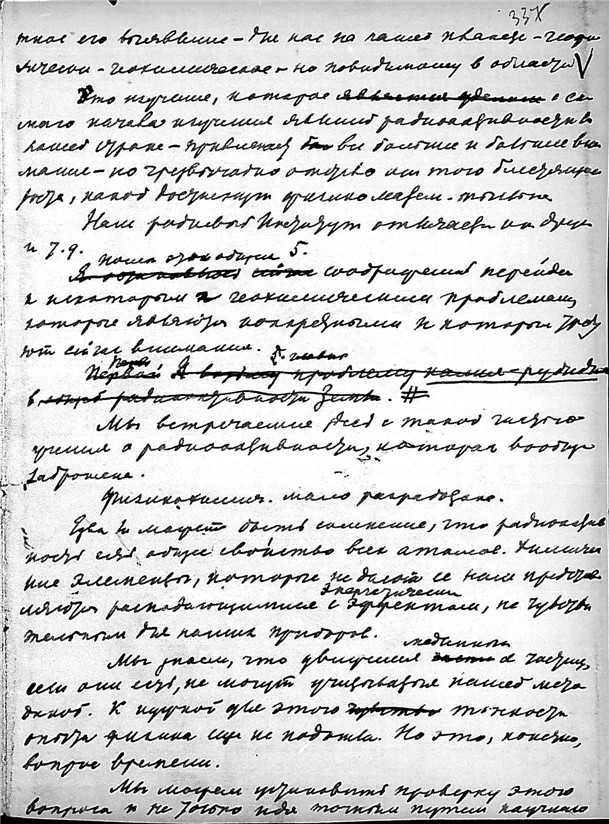 337
тное его выявление – для нас на нашей планете – геоди
ически – геохимическое – но повидимому в области
Это изучение, которое является уделом с са
мого начала изучения явлений радиоактивности в
нашей стране – привлекает все большее и большее вни
мание – но чрезвычайно отстало от того блестящего
роста, какой достигнут физико матем.
Наш Радиевый Институт отвечает на
и т.д.
После этих общих 5.
соображений перейдем
к некоторым геохимическим проблемам,
которые являются конкретными и которые требу
ют сейчас внимания.
Первой Я возьму проблему калия-рубидия
в радиоактивности Земли. #
Мы встречаемся здесь с такой частью
учения о радиоактивности, которая вообще
заброшена.
Физикохимия. мало разработана.
Едва ли может быть сомнение, что радиоактив
ность есть общее свойство всех атомов. Химичес
кие элементы, которые не дают ее нам представ
энергетическим
ляются распадающимися с эффектом, не чувстви
тельным для наших приборов.
медленные
Мы знаем, что движущиеся α частицы,
если они есть, не могут учитываться нашей мето
дикой. К нужной для этого чувство точности
опыта физика еще не подошла. Но это, конечно,
вопрос времени.
Мы можем установить проверку этого
вопроса и не только идя точным путем научного